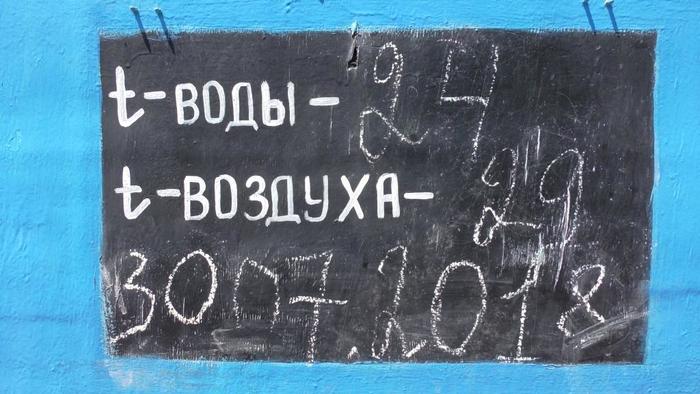 t-ВОДЫ- 24
t-ВОЗДУХА- 29
30 07.2018